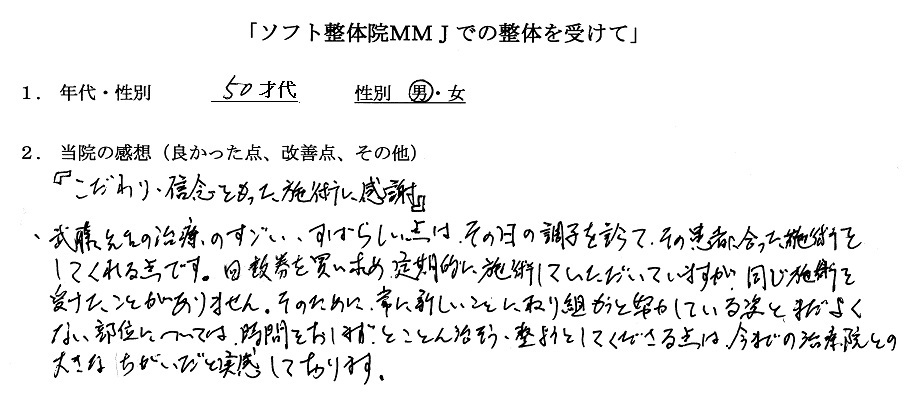 「ソフト整体院MMJでの整体を受けて」
1. 年代・性別 50才代 性別 男・女
2. 当院の感想（良かった点、改善点、その他）
『こだわり、信念をもった施術に感謝』
、武藤先生の治療のすごい、すばらしい点は、その日の調子を診て、その患者に合った施術を
してくれる点です。回数券を買い求め定期的に施術していただいていますが、同じ施術を
受けたことがありません。そのために、常に新しいことにとり組もうと努力している姿と、まだよく
ない部位については、時間をおしまずとことん治そう、整ようとしてくださる点は、今までの治療院との
大きなちがいだと実感しております。